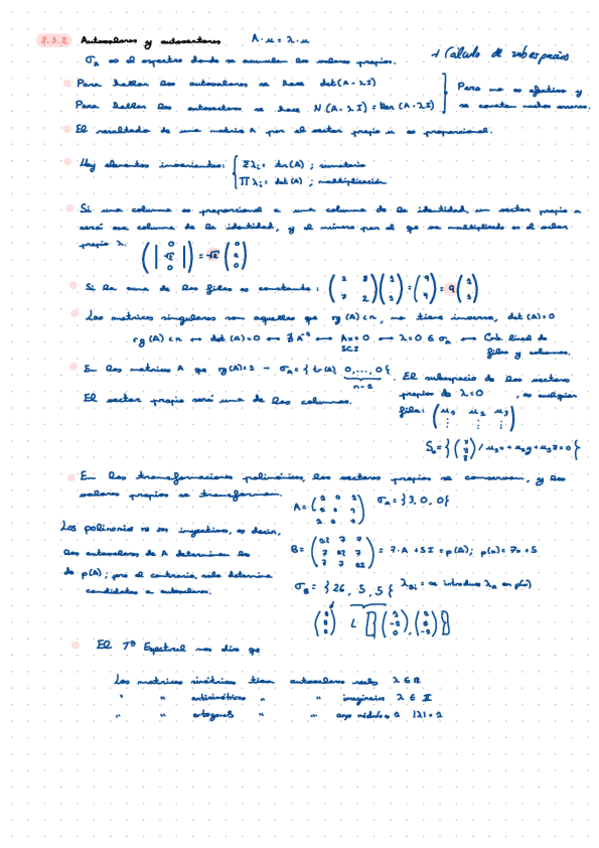 2.3.2 Autovalores y autovectores A·u = λ·u
+ Cálculo de subespacios
σA es el espectro donde se acumulan los valores propios.
Para hallar los autovalores se hace det(A-λI)
Para hallar los autovectores se hace N(A-λI) = Ker(A-λI)
Pero no es efectivo y
se cometen muchos errores.
El resultado de una matriz A por el vector propio u es proporcional.
Hay elementos invariantes: { Σλi = tr(A) ; sumatorio
Πλi = det(A) ; multiplicación
Si una columna es proporcional a una columna de la identidad, un vector propio u
será esa columna de la identidad, y el número por el que va multiplicado es el valor
propio λ.
Si la suma de las filas es constante:
Las matrices singulares son aquellas que rg(A)<n, no tiene inversa, det(A)=0
rg(A)<n ↔ det(A)=0 ↔ ∄A⁻¹ ↔ Ax=0 ↔ λ=0 ∈ σA ↔ Comb. lineal de
SCI filas y columnas.
En las matrices A que rg(A)=1 → σA = {tr(A), 0,...,0}.
n-1
El vector propio será una de las columnas.
El subespacio de los vectores
propios de λ=0, es cualquier
fila: (u1 u2 u3)
S0 = {(x y z) / u1x+u2y+u3z=0}
En las transformaciones polinómicas, los vectores propios se conservan, y los
valores propios se transforman.
A = σA = {3,0,0}
Los polinomios no son inyectivos, es decir,
los autovalores de A determinan los
de p(A); pero al contrario, solo determina
candidatos a autovalores.
B = = 7·A + 5I = p(A); p(x) = 7x+5
σB = {26, 5, 5} λBi = se introduce λA en p(x)
El Tª Espectral nos dice que
Las matrices simétricas tienen autovalores reales λ ∈ ℝ
" " antisimétricas " " imaginarios λ ∈ 𝕀
" " ortogonales " " cuyo módulo es 1 |λ|=1